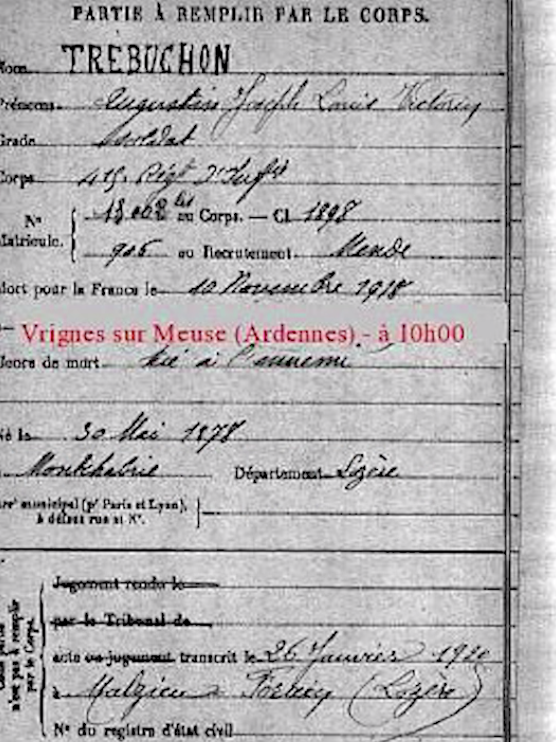 PARTIE À REMPLIR PAR LE CORPS.
Nom TRÉBUCHON
Prénoms Augustin Joseph Louis Victorin
Grade Soldat
Corps 415e Régt d'Infie
No Matricule. { 13.002 bis au Corps. — Cl. 1898
906 au Recrutement Mende
Mort pour la France le 10 Novembre 1918
Vrignes sur Meuse (Ardennes) - à 10h00
Genre de mort tué à l'ennemi
Né le 30 Mai 1878
Département Lozère
arrt municipal (pr Paris et Lyon),
à défaut rue et No.
Jugement rendu le
par le Tribunal de
acte ou jugement transcrit le 26 Janvier 1920
à Malzieu Forain (Lozère)
No du registre d'état civil
Cette partie
n'est pas à remplir
par le Corps.